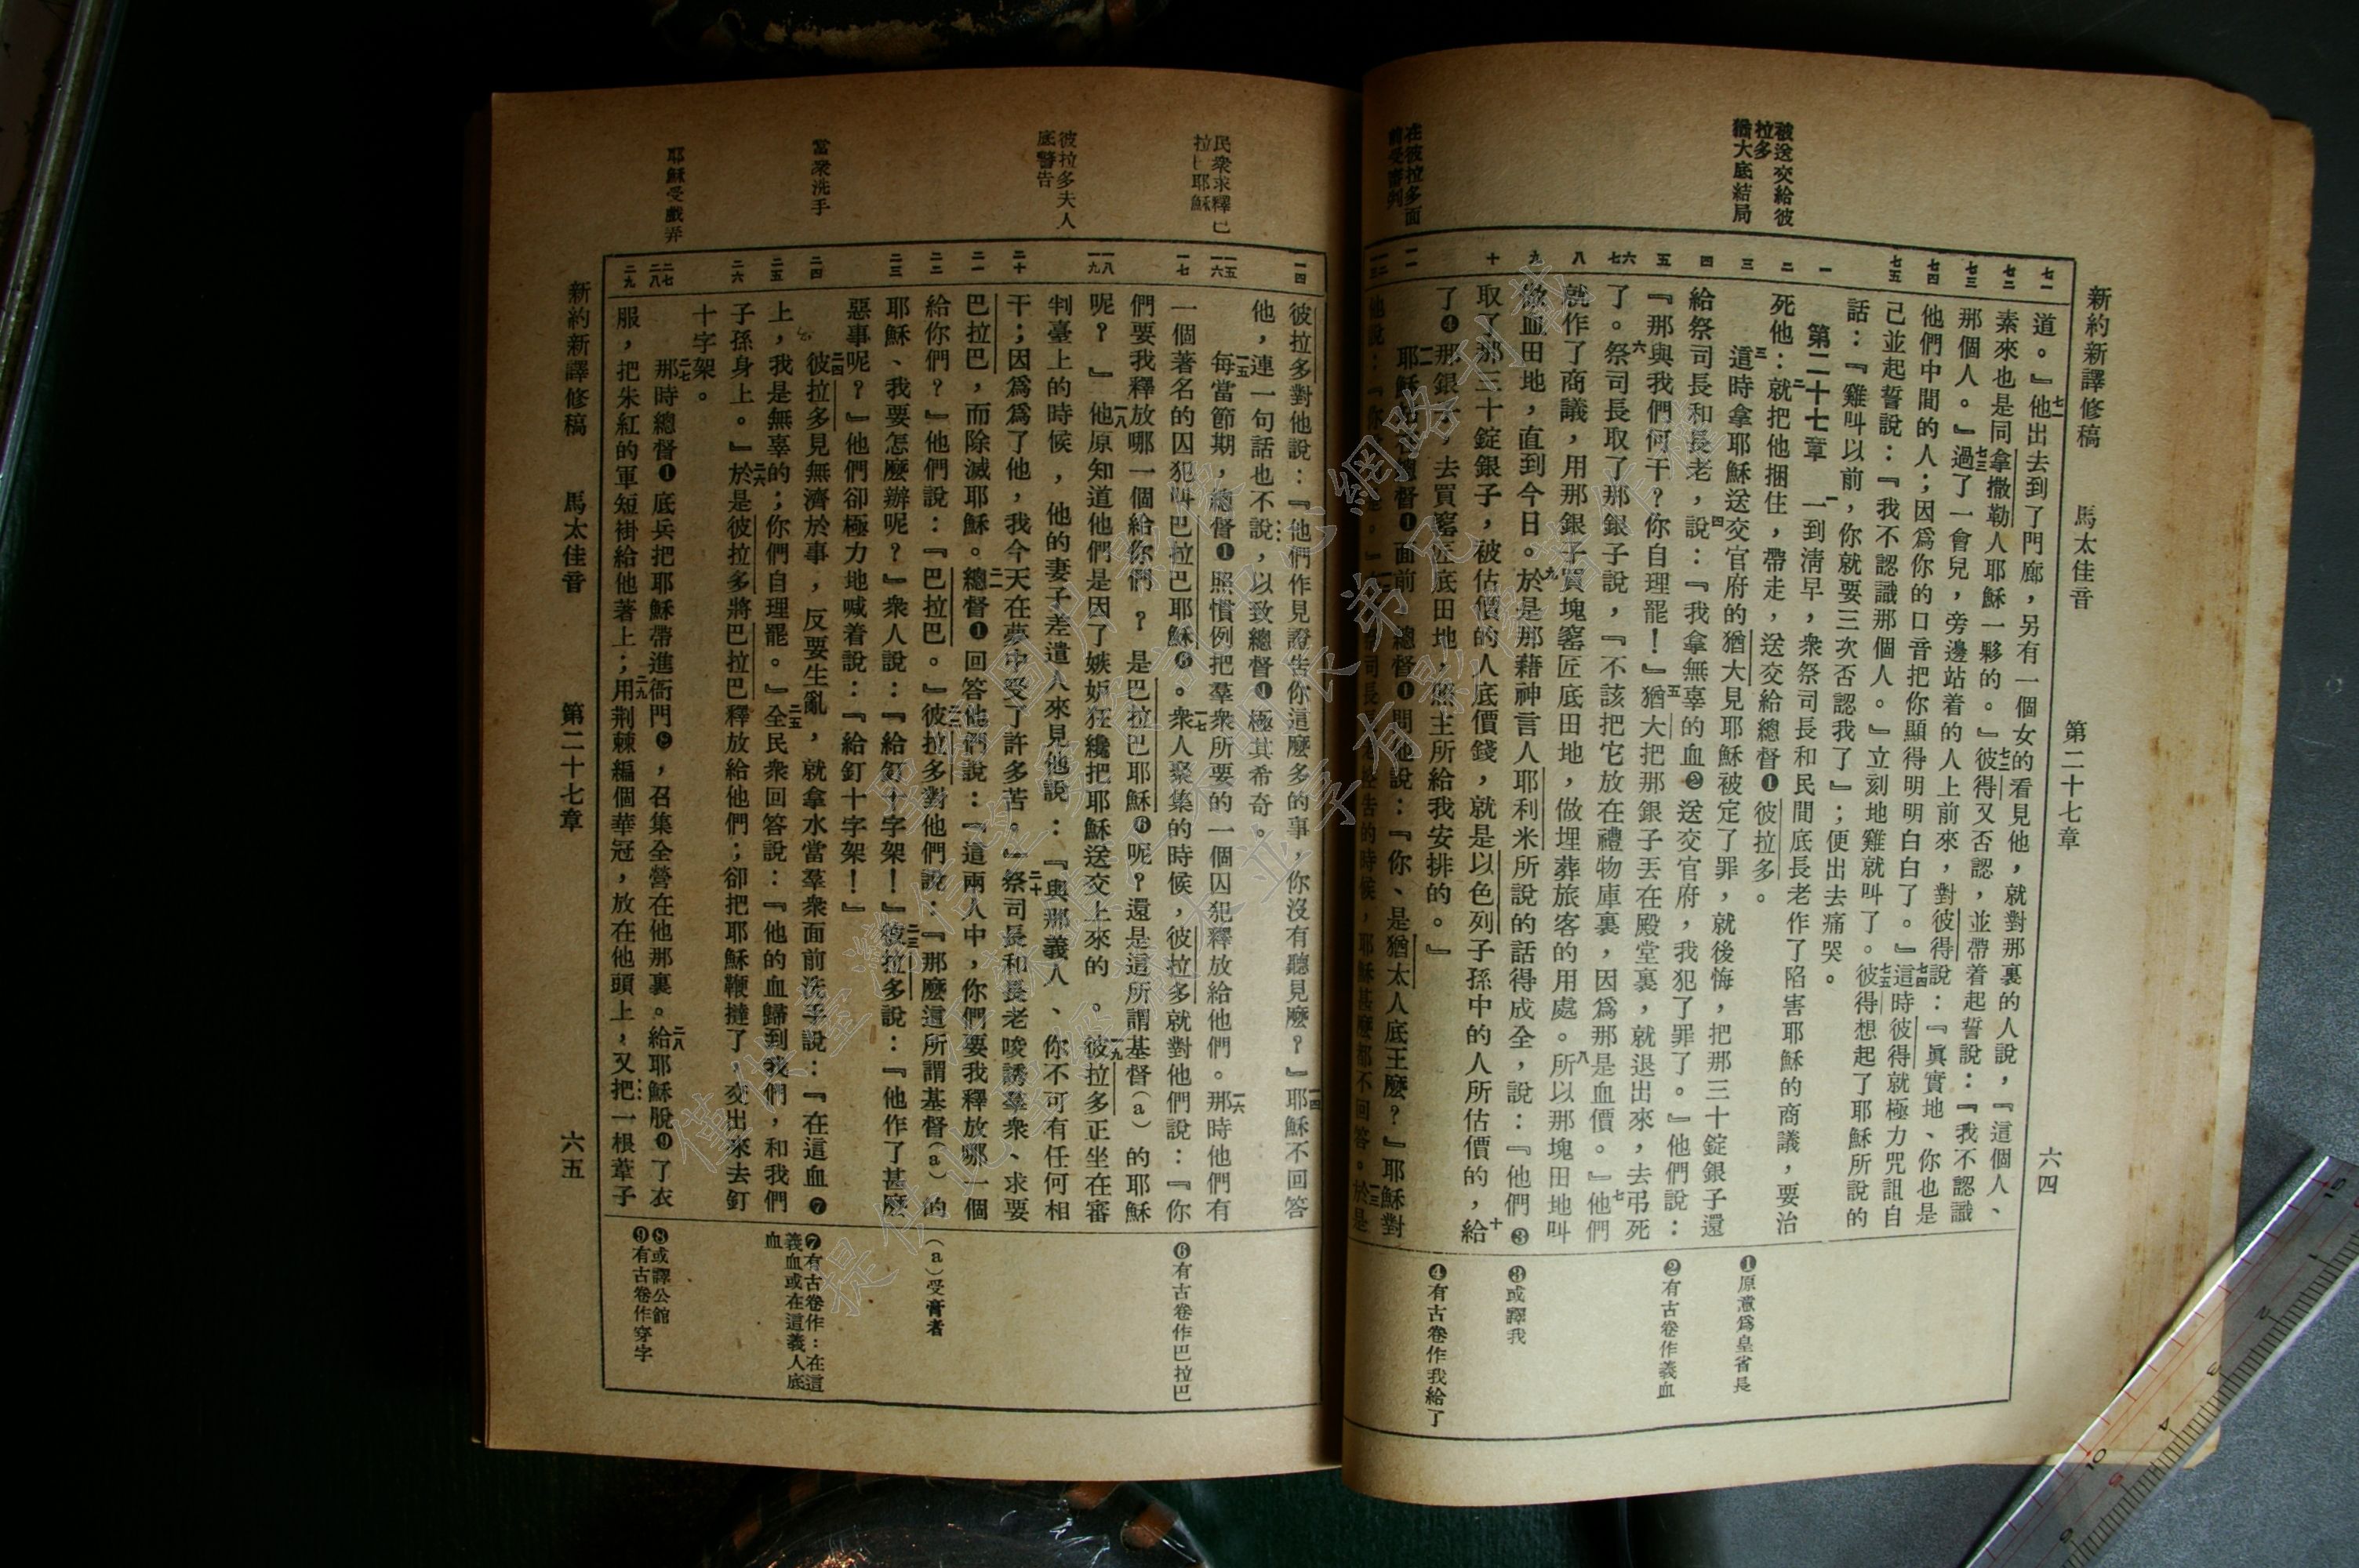 新約新譯修稿　馬太佳音　第二十七章　六四
被送交給彼
拉多
猶大底結局
在彼拉多面
前受審判
七一
七二
七三
七四
七五
一
二
三
四
五
六七
八
九
十
一一
道。』七一他出去到了門廊，另有一個女的看見他，就對那裏的人說，『這個人、
素來也是同拿撒勒人耶穌一夥的。』七二彼得又否認，並帶着起誓說：『我不認識
那個人。』七三過了一會兒，旁邊站着的人上前來，對彼得說：『眞實地、你也是
他們中間的人；因爲你的口音把你顯得明明白白了。』七四這時彼得就極力咒詛自
己並起誓說：『我不認識那個人。』立刻地雞就叫了。七五彼得想起了耶穌所說的
話：『雞叫以前，你就要三次否認我了』；便出去痛哭。
第二十七章　一一到淸早，衆祭司長和民間底長老作了陷害耶穌的商議，要治
死他：二就把他捆住，帶走，送交給總督❶彼拉多。
三這時拿耶穌送交官府的猶大見耶穌被定了罪，就後悔，把那三十錠銀子還
給祭司長和長老，說：四『我拿無辜的血❷送交官府，我犯了罪了。』他們說：
『那與我們何干？你自理罷！』五猶大把那銀子丟在殿堂裏，就退出來，去弔死
了。六祭司長取了那銀子說，『不該把它放在禮物庫裏，因爲那是血價。』七他們
就作了商議，用那銀子買塊窰匠底田地，做埋葬旅客的用處。八所以那塊田地叫
做血田地，直到今日。九於是那藉神言人耶利米所說的話得成全，說：『他們❸
取了那三十錠銀子，被估價的人底價錢，就是以色列子孫中的人所估價的，十給
了❹那銀子，去買窰匠底田地，照主所給我安排的。』
一一耶穌站在總督❶面前　總督❶問他說：『你、是猶太人底王麼？』耶穌對
他說：『你
❶原意爲皇省長
❷有古卷作義血
❸或譯我
❹有古卷作我給了
民衆求釋巴
拉巴耶穌
彼拉多夫人
底警告
當衆洗手
耶穌受戲弄
一四
一五
一六
一七
一八
一九
二十
二一
二二
二三
二四
二五
二六
二七
二八
二九
彼拉多對他說：『他們作見證告你這麼多的事，你沒有聽見麼？』一四耶穌不回答
他，連一句話也不說，以致總督❶極其希奇。
一五每當節期，總督❶照慣例把羣衆所要的一個囚犯釋放給他們。一六那時他們有
一個著名的囚犯叫巴拉巴耶穌❻。一七衆人聚集的時候，彼拉多就對他們說：『你
們要我釋放哪一個給你們？是巴拉巴耶穌❻呢？還是這所謂基督(a)的耶穌
呢？』一八他原知道他們是因了嫉妒狂纔把耶穌送交上來的。一九彼拉多正坐在審
判臺上的時候，他的妻子差遣人來見他說：『與那義人、你不可有任何相
干；因爲爲了他，我今天在夢中受了許多苦。』二十祭司長和長老唆誘羣衆、求要
巴拉巴，而除滅耶穌。二一總督❶回答他們說：『這兩人中，你們要我釋放哪一個
給你們？』他們說：『巴拉巴。』二二彼拉多對他們說：『那麼這所謂基督(a)的
耶穌、我要怎麼辦呢？』衆人說：『給釘十字架！』二三彼拉多說：『他作了甚麼
惡事呢？』他們卻極力地喊着說：『給釘十字架！』
二四彼拉多見無濟於事，反要生亂，就拿水當羣衆面前洗手說：『在這血❼
上，我是無辜的；你們自理罷。』二五全民衆回答說：『他的血歸到我們，和我們
子孫身上。』二六於是彼拉多將巴拉巴釋放給他們；卻把耶穌鞭撻了，交出來去釘
十字架。
二七那時總督❶底兵把耶穌帶進衙門❽，召集全營在他那裏。二八給耶穌脫❾了衣
服，把朱紅的軍短褂給他著上；二九用荆棘編個華冠，放在他頭上，又把一根葦子
❻有古卷作巴拉巴
(a)受膏者
❼有古卷作：在這
義血或在這義人底
血
❽或譯公館
❾有古卷作穿字
新約新譯修稿　馬太佳音　第二十七章　六五